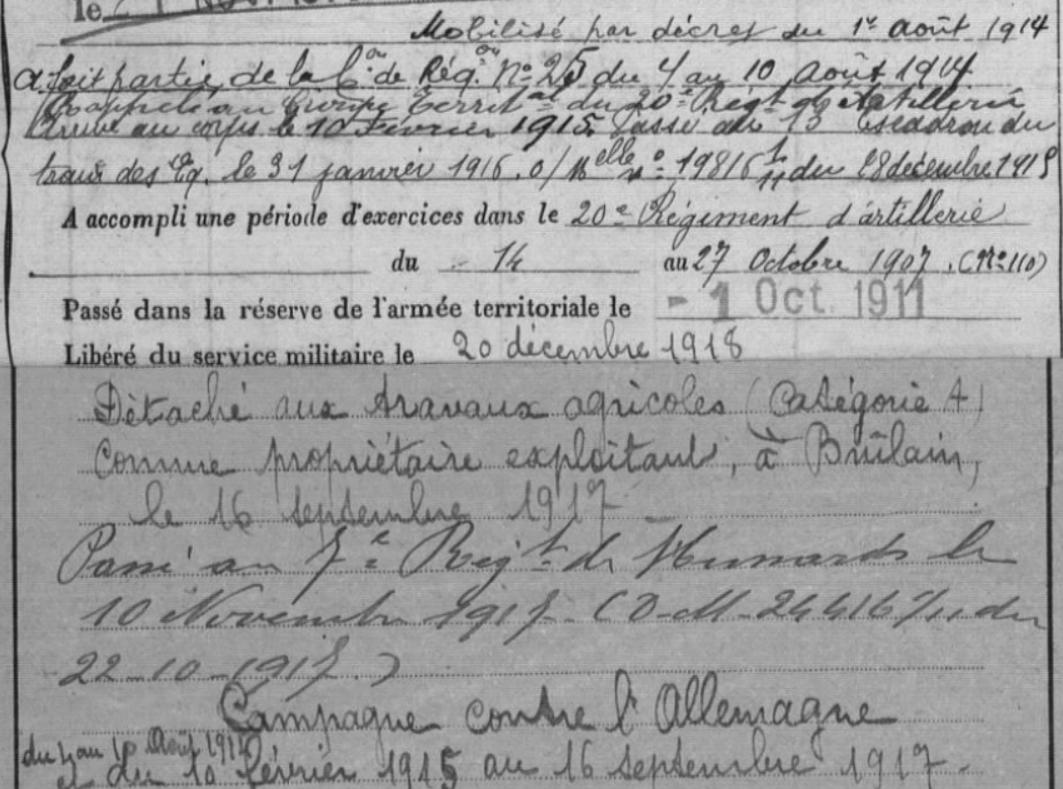 le 21 Nov.
Mobilisé par décret du 1er août 1914
a fait partie de la Con de Rég.on No 25 du 4 au 10 Août 1914
Rappelé au Groupe Territal du 20e Régt d'Artillerie
Arrivé au corps le 10 Février 1915. Passé au 13 Escadron du
train des Eq. le 31 janvier 1916. o/ Melle no 19816 1/11 du 28 décembre 1915
A accompli une période d'exercices dans le 20e Régiment d'artillerie
du 14 au 27 Octobre 1907. (No 110)
Passé dans la réserve de l'armée territoriale le - 1 Oct. 1911
Libéré du service militaire le 20 décembre 1918
Détaché aux travaux agricoles (Catégorie A)
comme propriétaire exploitant, à Brûlain,
le 16 septembre 1917
Passé au 7e Régt de Hussards le
10 Novembre 1917. (D.M. 24416 1/11 du
22-10-1917.)
Campagne contre l'Allemagne
du 4 au 10 Août 1914
et du 10 février 1915 au 16 septembre 1917.